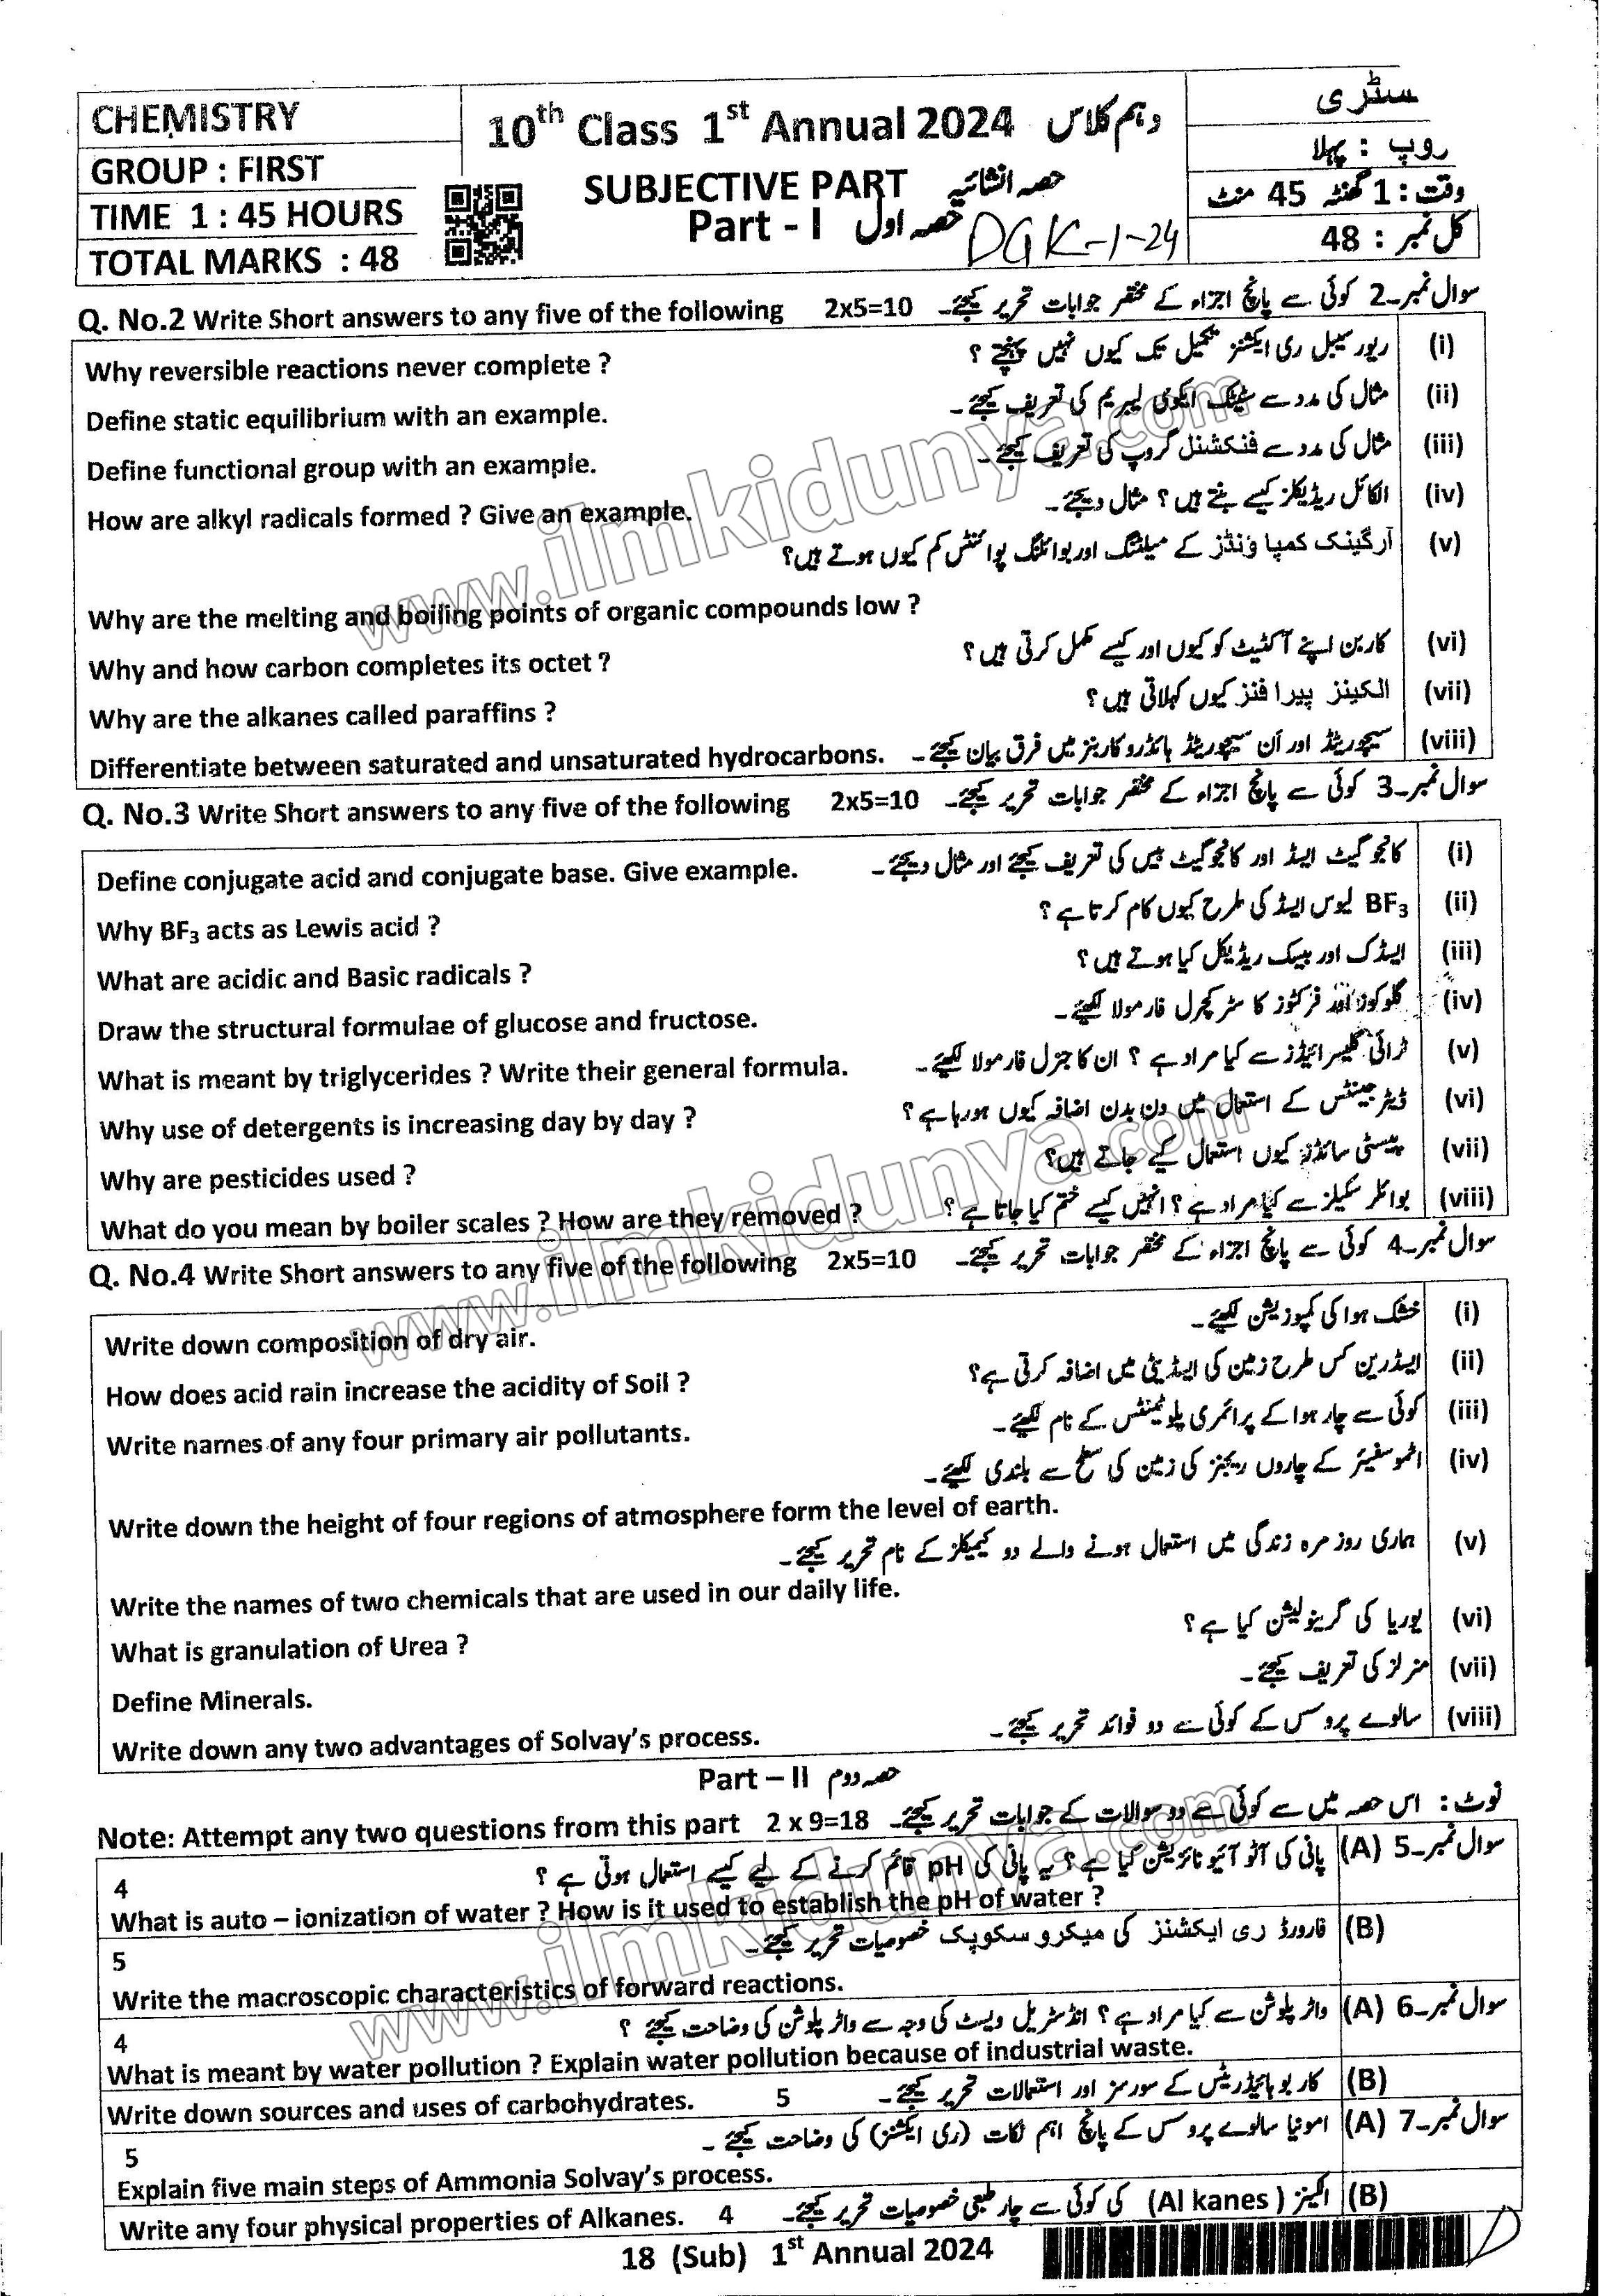 CHEMISTRY
GROUP : FIRST
TIME 1 : 45 HOURS
TOTAL MARKS : 48
10th Class 1st Annual 2024 دہم کلاس
SUBJECTIVE PART حصہ انشائیہ
Part - I حصہ اول
DGK-1-24
سٹری
روپ : پہلا
وقت : 1 گھنٹہ 45 منٹ
کل نمبر : 48
Q. No.2 Write Short answers to any five of the following 2x5=10 سوال نمبر۔2 کوئی سے پانچ اجزاء کے مختصر جوابات تحریر کیجئے۔
Why reversible reactions never complete ? ریورسیبل ری ایکشنز تکمیل تک کیوں نہیں پہنچتے ؟ (i)
Define static equilibrium with an example. مثال کی مدد سے سٹیٹک ایکوی لبریم کی تعریف کیجئے۔ (ii)
Define functional group with an example. مثال کی مدد سے فنکشنل گروپ کی تعریف کیجئے۔ (iii)
How are alkyl radicals formed ? Give an example. الکائل ریڈیکلز کیسے بنتے ہیں ؟ مثال دیجئے۔ (iv)
آرگینک کمپاؤنڈز کے میلٹنگ اور بوائلنگ پوائنٹس کم کیوں ہوتے ہیں؟ (v)
Why are the melting and boiling points of organic compounds low ?
Why and how carbon completes its octet ? کاربن اپنے آکٹیٹ کو کیوں اور کیسے مکمل کرتی ہیں ؟ (vi)
Why are the alkanes called paraffins ? الکینز پیرا فنز کیوں کہلاتی ہیں ؟ (vii)
Differentiate between saturated and unsaturated hydrocarbons. سیچوریٹڈ اور اَن سیچوریٹڈ ہائڈروکاربنز میں فرق بیان کیجئے۔ (viii)
Q. No.3 Write Short answers to any five of the following 2x5=10 سوال نمبر۔3 کوئی سے پانچ اجزاء کے مختصر جوابات تحریر کیجئے۔
Define conjugate acid and conjugate base. Give example. کانجوگیٹ ایسڈ اور کانجوگیٹ بیس کی تعریف کیجئے اور مثال دیجئے۔ (i)
Why BF3 acts as Lewis acid ? BF3 لیوس ایسڈ کی طرح کیوں کام کرتا ہے ؟ (ii)
What are acidic and Basic radicals ? ایسڈک اور بیسک ریڈیکل کیا ہوتے ہیں ؟ (iii)
Draw the structural formulae of glucose and fructose. گلوکوز اور فرکٹوز کا سٹرکچرل فارمولا لکھیئے۔ (iv)
What is meant by triglycerides ? Write their general formula. ٹرائی گلیسرائیڈز سے کیا مراد ہے ؟ ان کا جنرل فارمولا لکھیئے۔ (v)
Why use of detergents is increasing day by day ? ڈیٹرجینٹس کے استعمال میں دن بدن اضافہ کیوں ہورہا ہے ؟ (vi)
Why are pesticides used ? پیسٹی سائڈز کیوں استعمال کیے جاتے ہیں؟ (vii)
What do you mean by boiler scales ? How are they removed ? بوائلر سکیلز سے کیا مراد ہے ؟ انہیں کیسے ختم کیا جاتا ہے ؟ (viii)
Q. No.4 Write Short answers to any five of the following 2x5=10 سوال نمبر۔4 کوئی سے پانچ اجزاء کے مختصر جوابات تحریر کیجئے۔
Write down composition of dry air. خشک ہوا کی کمپوزیشن لکھیئے۔ (i)
How does acid rain increase the acidity of Soil ? ایسڈرین کس طرح زمین کی ایسڈیٹی میں اضافہ کرتی ہے؟ (ii)
Write names of any four primary air pollutants. کوئی سے چار ہوا کے پرائمری پلوٹینٹس کے نام لکھیئے۔ (iii)
اٹموسفیئر کے چاروں ریجنز کی زمین کی سطح سے بلندی لکھیئے۔ (iv)
Write down the height of four regions of atmosphere form the level of earth.
ہماری روز مرہ زندگی میں استعمال ہونے والے دو کیمیکلز کے نام تحریر کیجئے۔ (v)
Write the names of two chemicals that are used in our daily life.
What is granulation of Urea ? یوریا کی گرینولیشن کیا ہے ؟ (vi)
Define Minerals. منرلز کی تعریف کیجئے۔ (vii)
Write down any two advantages of Solvay's process. سالوے پروسس کے کوئی سے دو فوائد تحریر کیجئے۔ (viii)
Part – II حصہ دوم
Note: Attempt any two questions from this part 2 x 9=18 نوٹ : اس حصہ میں سے کوئی سے دو سوالات کے جوابات تحریر کیجئے۔
4 پانی کی آٹو آئیونائزیشن کیا ہے ؟ یہ پانی کی pH قائم کرنے کے لیے کیسے استعمال ہوتی ہے ؟ سوال نمبر۔5 (A)
What is auto – ionization of water ? How is it used to establish the pH of water ?
5 فارورڈ ری ایکشنز کی میکروسکوپک خصوصیات تحریر کیجئے۔ (B)
Write the macroscopic characteristics of forward reactions.
4 واٹر پلوشن سے کیا مراد ہے ؟ انڈسٹریل ویسٹ کی وجہ سے واٹر پلوشن کی وضاحت کیجئے ؟ سوال نمبر۔6 (A)
What is meant by water pollution ? Explain water pollution because of industrial waste.
Write down sources and uses of carbohydrates. 5 کاربوہائیڈریٹس کے سورسز اور استعمالات تحریر کیجئے۔ (B)
5 امونیا سالوے پروسس کے پانچ اہم نکات (ری ایکشنز) کی وضاحت کیجئے ۔ سوال نمبر۔7 (A)
Explain five main steps of Ammonia Solvay's process.
Write any four physical properties of Alkanes. 4 الکینز (Al kanes ) کی کوئی سے چار طبعی خصوصیات تحریر کیجئے۔ (B)
18 (Sub) 1st Annual 2024
D
www.ilmkidunya.com
www.ilmkidunya.com
www.ilmkidunya.com